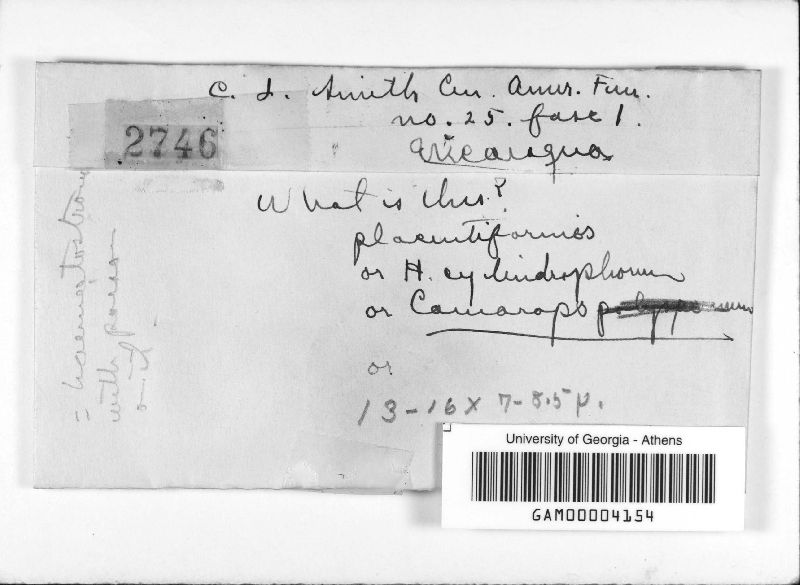 C. L. Smith Cen. Amer. Fun.
no. 25. fasc 1.
2746
Nicaragua
What is this?
placentiformis
or H. cylindrophorum
or Camarops
or
13-16 x 7-8.5 µ.
= haematostroma
with
University of Georgia - Athens
GAM00004154